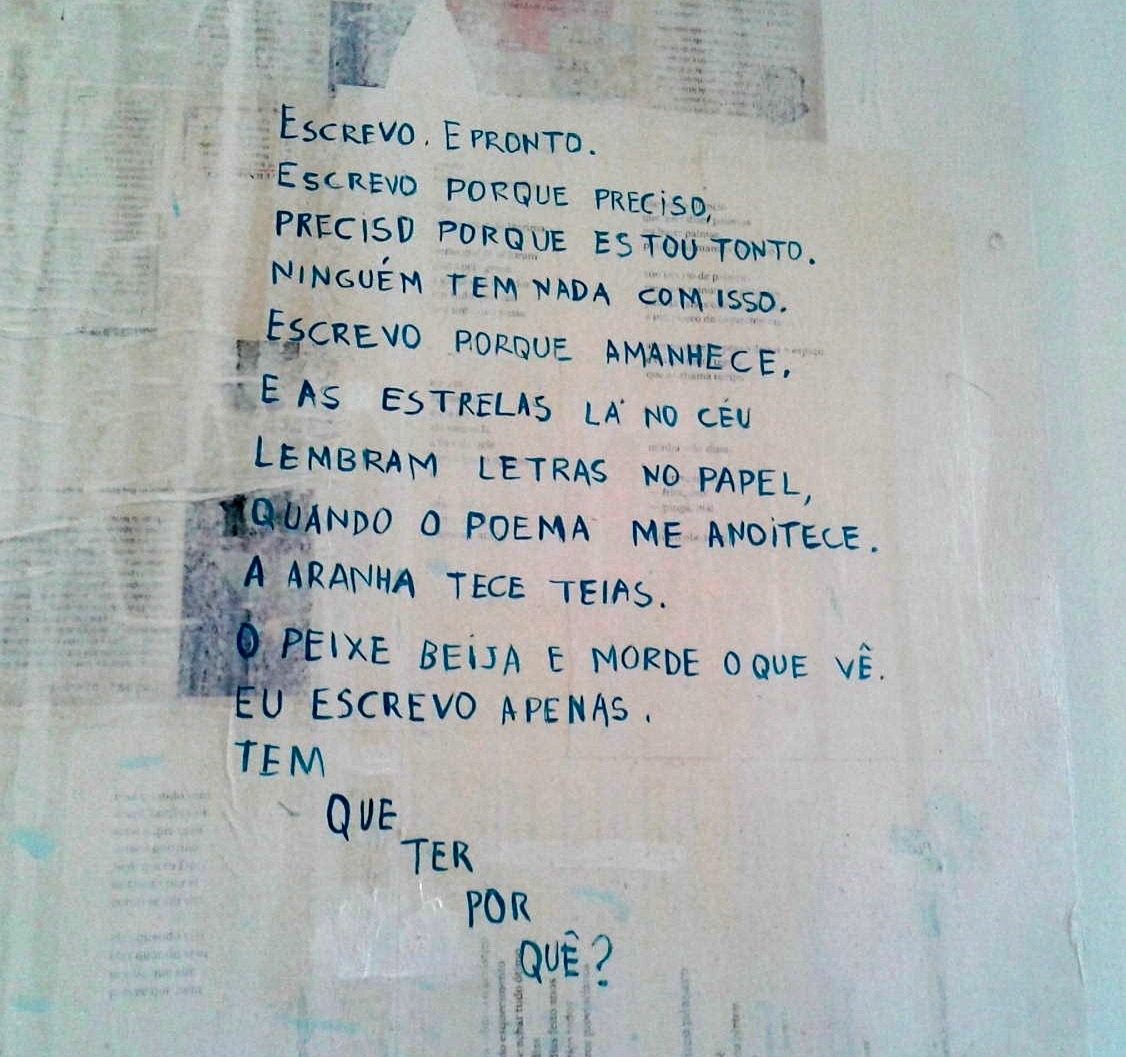 ESCREVO. E PRONTO.
ESCREVO PORQUE PRECISO,
PRECISO PORQUE ESTOU TONTO.
NINGUÉM TEM NADA COM ISSO.
ESCREVO PORQUE AMANHECE,
E AS ESTRELAS LÁ NO CÉU
LEMBRAM LETRAS NO PAPEL,
QUANDO O POEMA ME ANOITECE.
A ARANHA TECE TEIAS.
O PEIXE BEIJA E MORDE O QUE VÊ.
EU ESCREVO APENAS.
TEM
QUE
TER
POR
QUÊ?